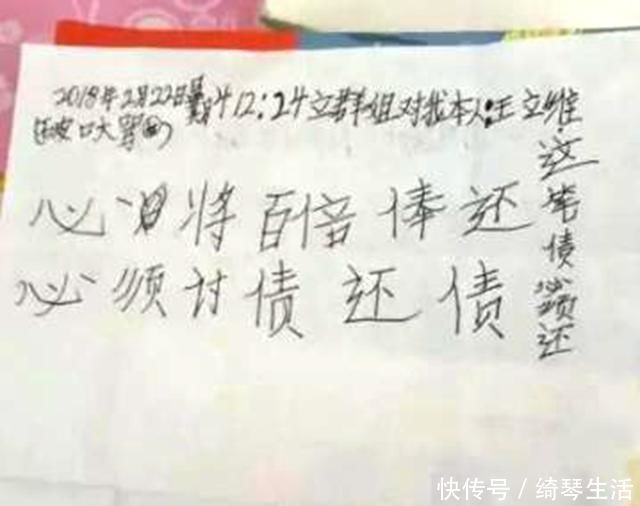 2018年2月22日星期4 12:24立群姐对我本人王立维
(破口大骂)
必将百倍俸还
必须讨债还债
这笔债必须还
快传号／绮琴生活